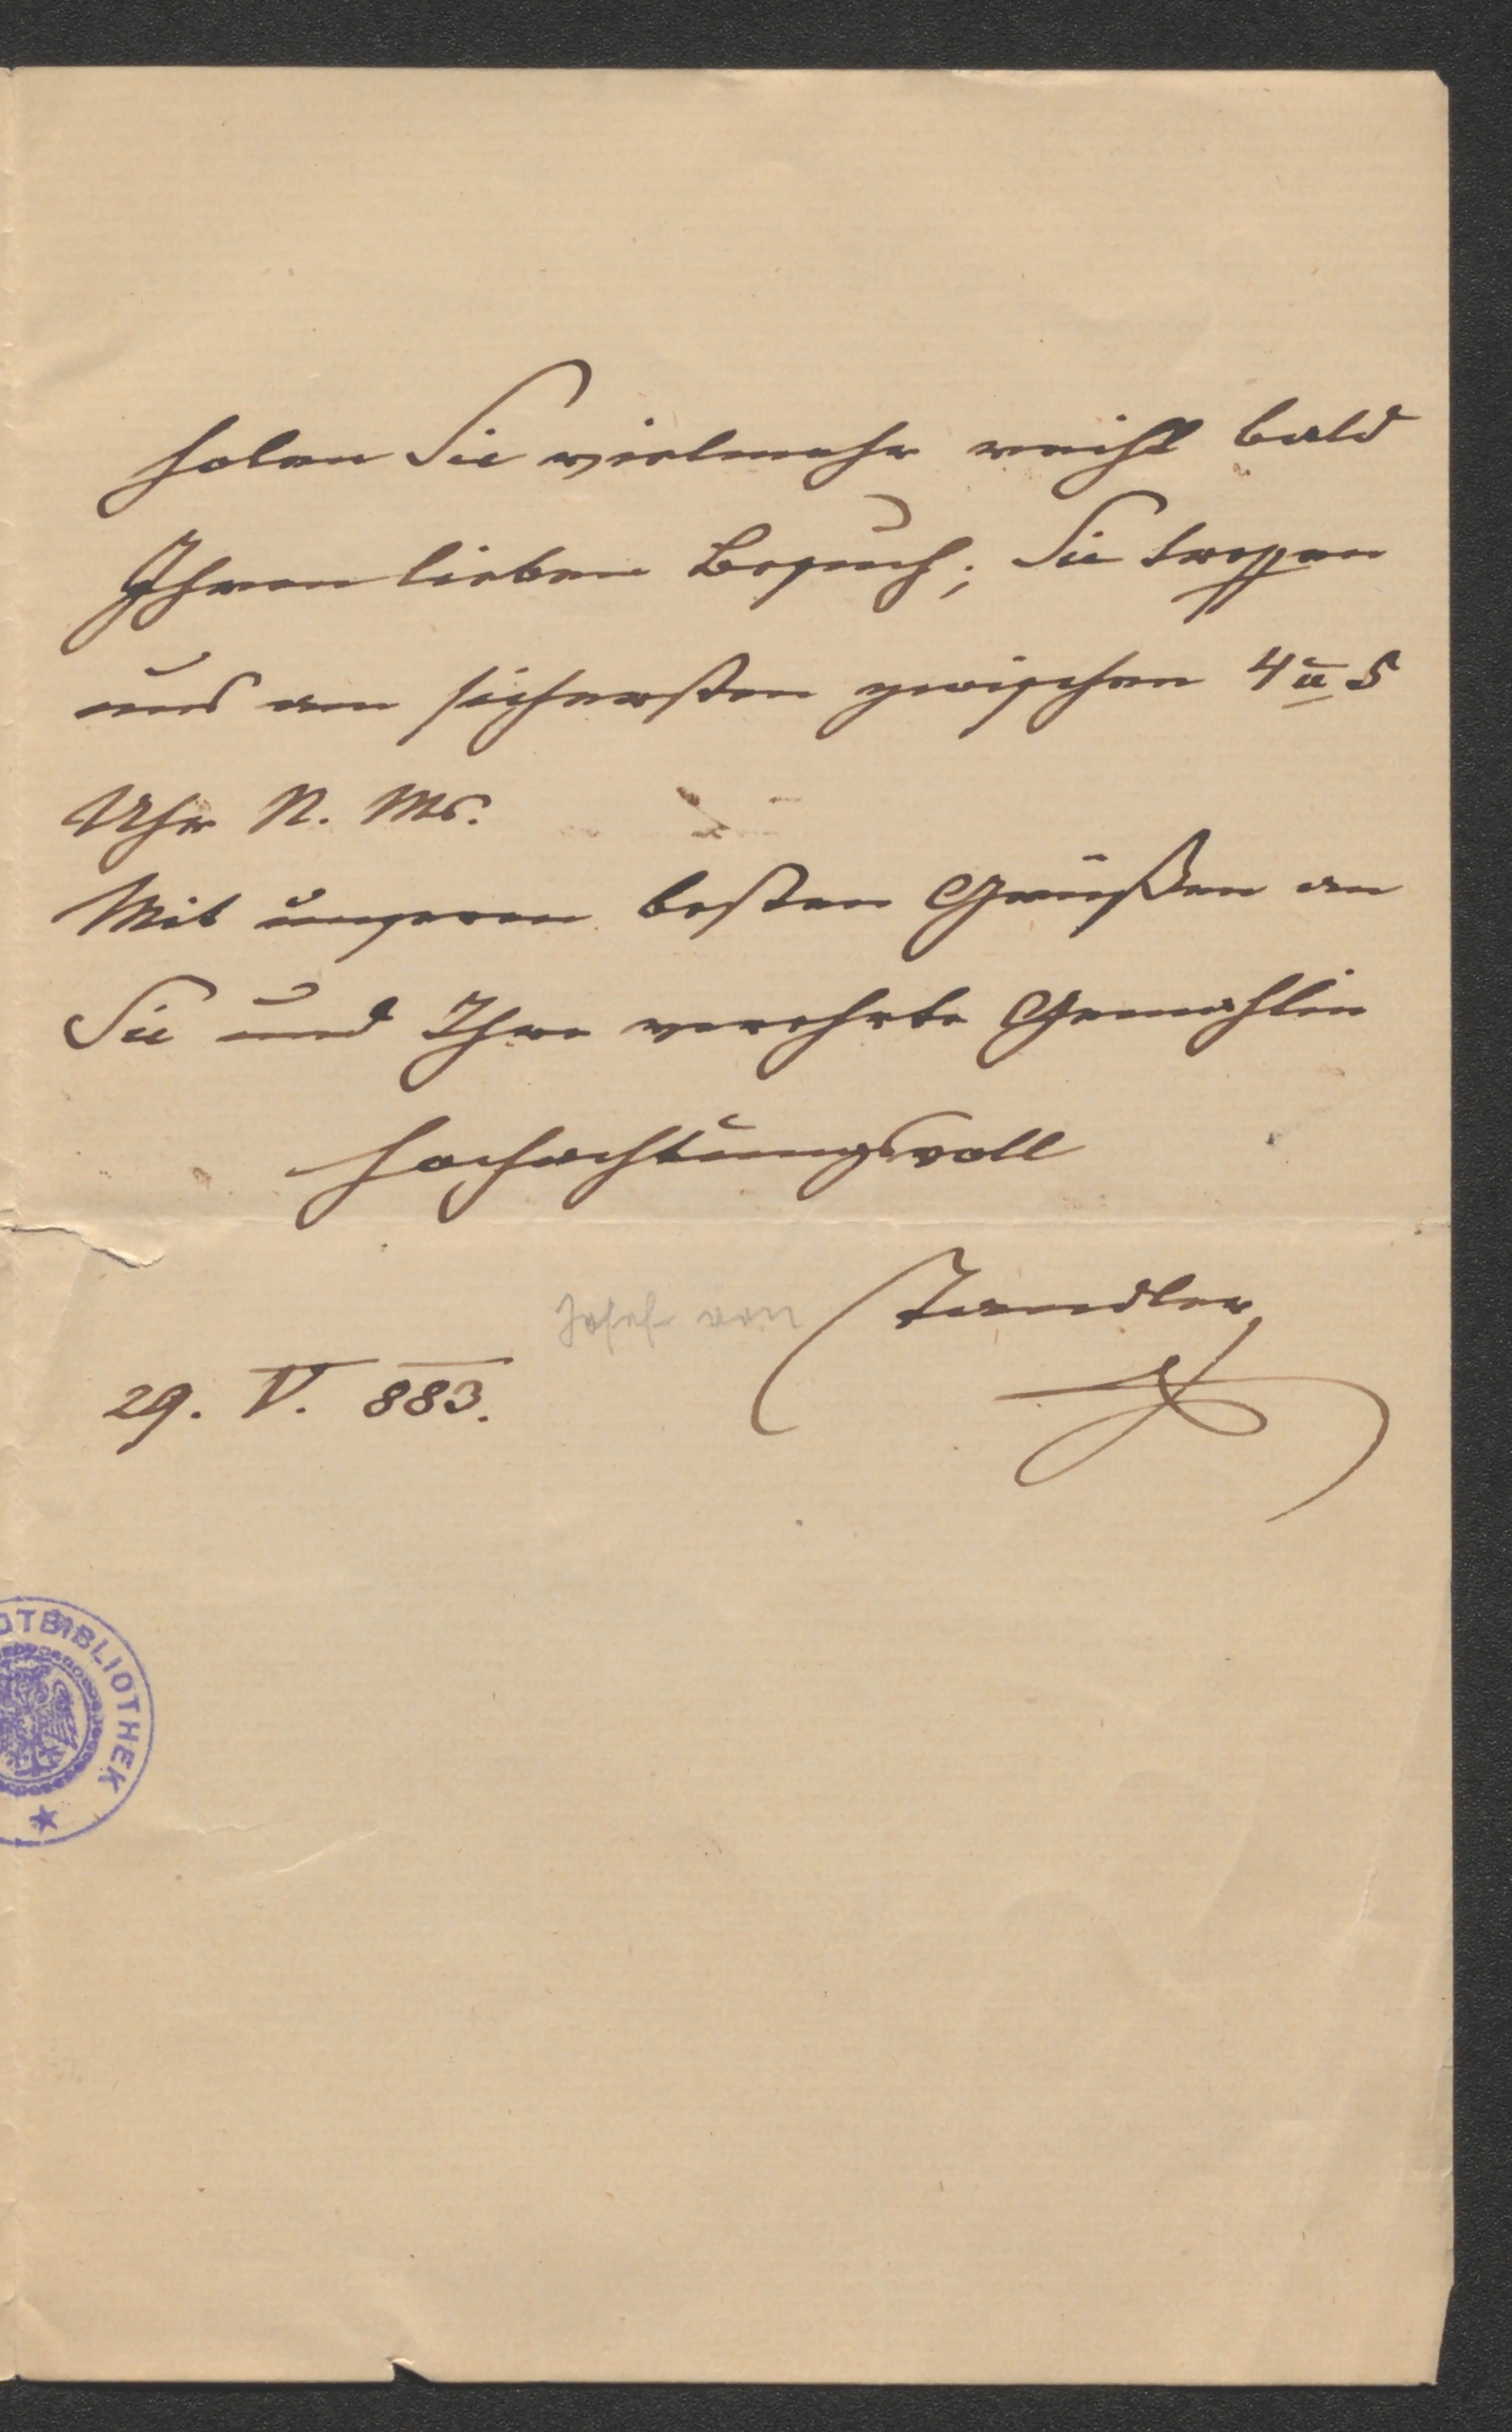 holen Sie vielmehr recht bald
Ihren lieben Besuch; Sie treffen
uns am sichersten zwischen 4 u 5
Uhr N. M.
Mit unseren besten Grüßen an
Sie und Ihre verehrte Gemahlin
hochachtungsvoll
Josef von Tandler
29. V. 883.
DTBIBLIOTHEK